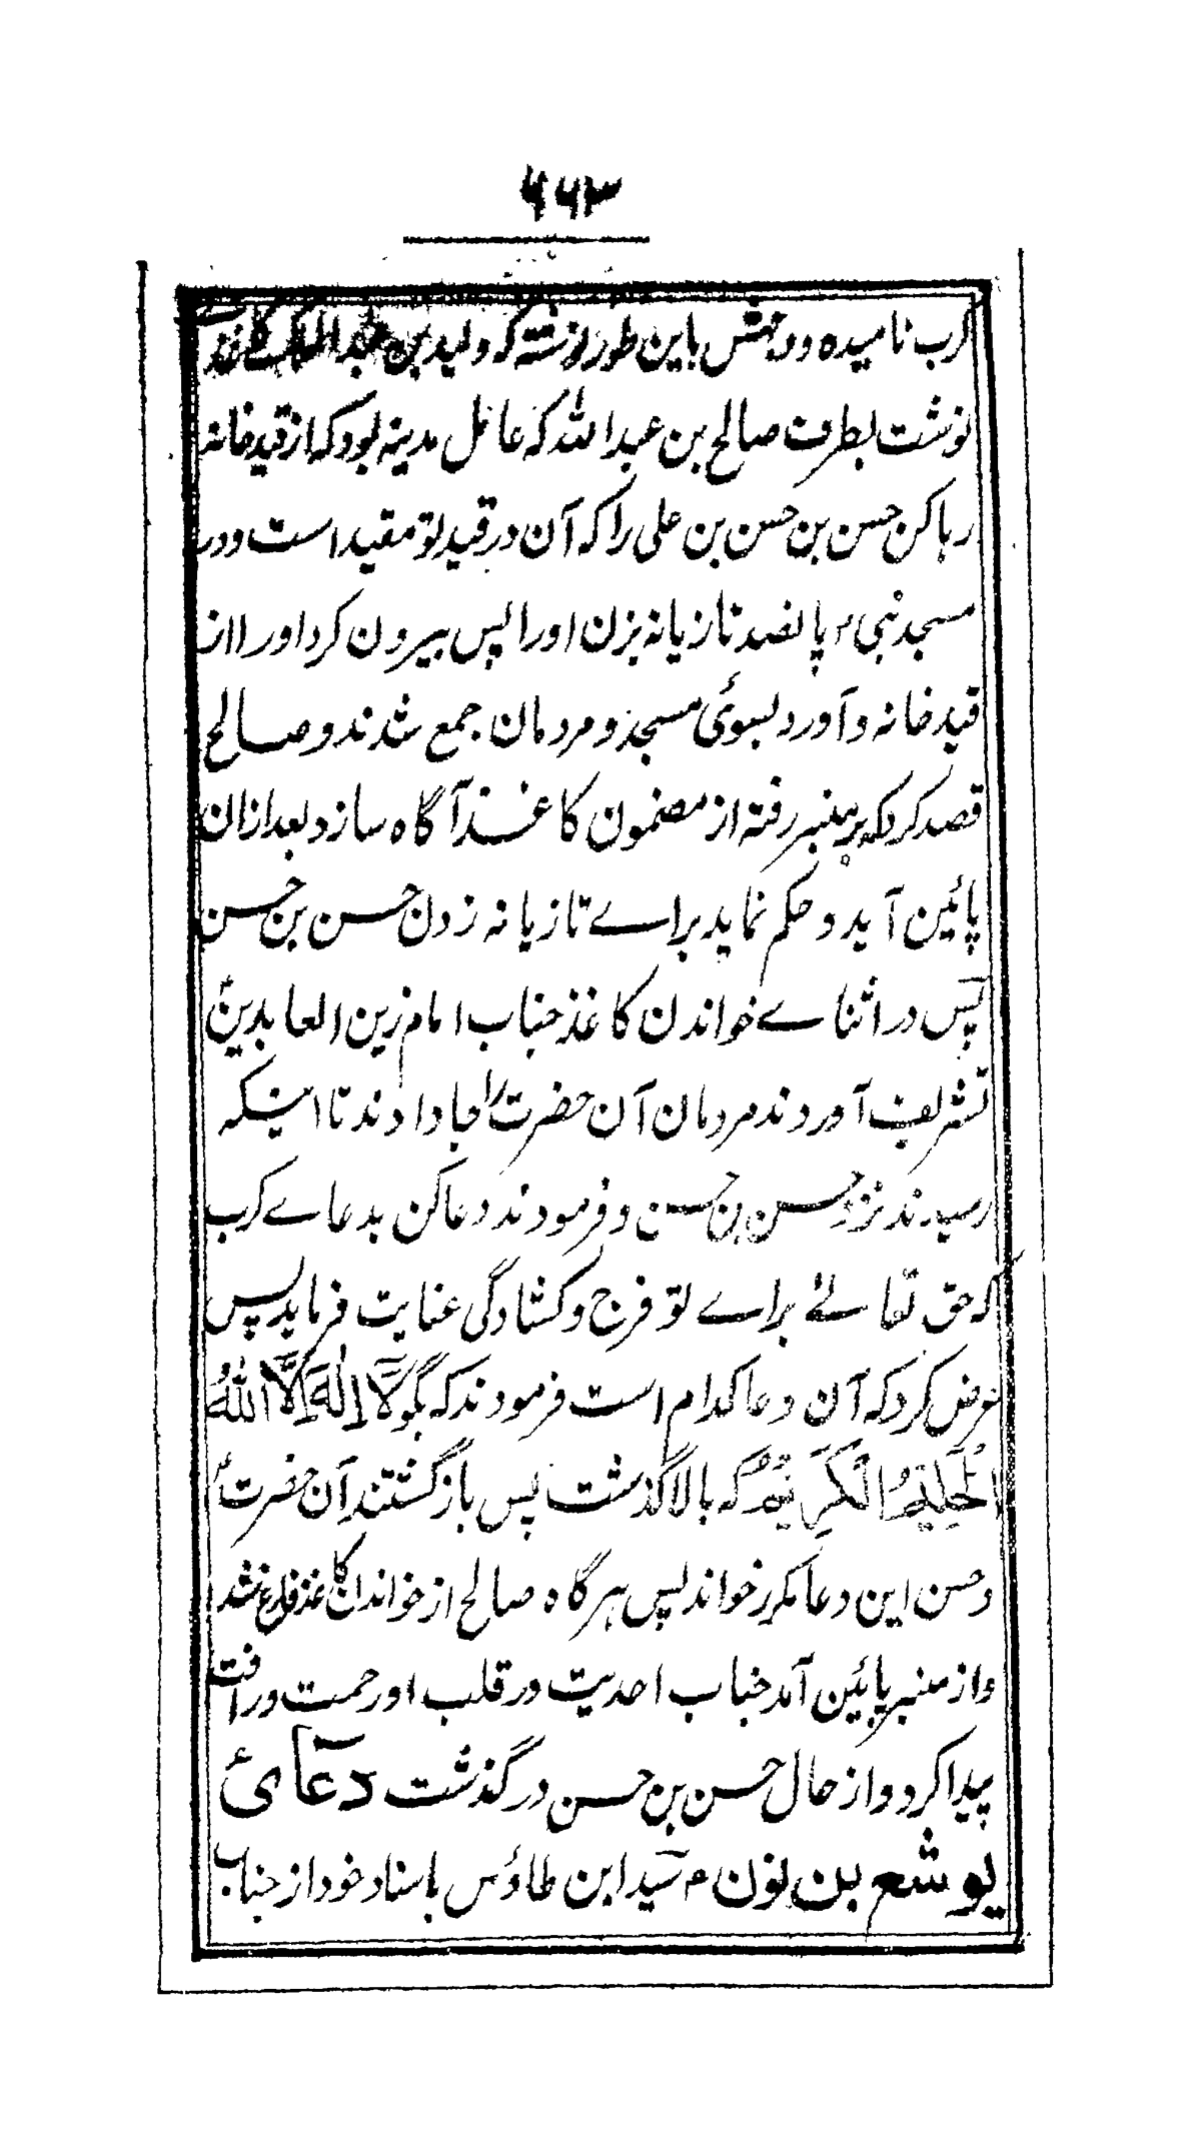 ۶۶۳
کرب نامیده و وجهش باین طور نوشته که ولید بن عبد الملک کاغذے
نوشت بطرف صالح بن عبد الله که عامل مدینه بود که از قید خانه
رہا کن حسن بن حسن بن علی را که آن در قید تو مقید است و در
مسجد نبی ؐ پانصد تازیانه بزن اورا پس بیرون کرد اورا از
قید خانه و آورد بسوئ مسجد و مردمان جمع شدند و صالح
قصد کرد که بر منبر رفته از مضمون کاغذ آگاه سازد بعد ازان
پائین آید و حکم نماید براے تازیانه زدن حسن بن حسن
پس در اثناے خواندن کاغذ جناب امام زین العابدین ؑ
تشریف آوردند مردمان آن حضرت را جا دادند تا اینکه
رسیدند نزد حسن بن حسن و فرمودند دعا کن بدعاے کرب
که حق تعالےٰ براے تو فرج و کشادگی عنایت فرماید پس
عرض کرد که آن دعا کدام است فرمودند که بگو لَآ اِلٰهَ اِلَّا اللّٰهُ
الْحَلِيْمُ الْكَرِيْمُ که بالا گذشت پس باز گشتند آن حضرت ؑ
و حسن این دعا مکرر خواند پس ہر گاه صالح از خواندن کاغذ فارغ شد
و از منبر پائین آمد جناب احدیت در قلب او رحمت و رافت
پیدا کرد و از حال حسن بن حسن در گذشت دعائ
یوشع بن نون ؑ م سید ابن طاؤس باسناد خود از جناب